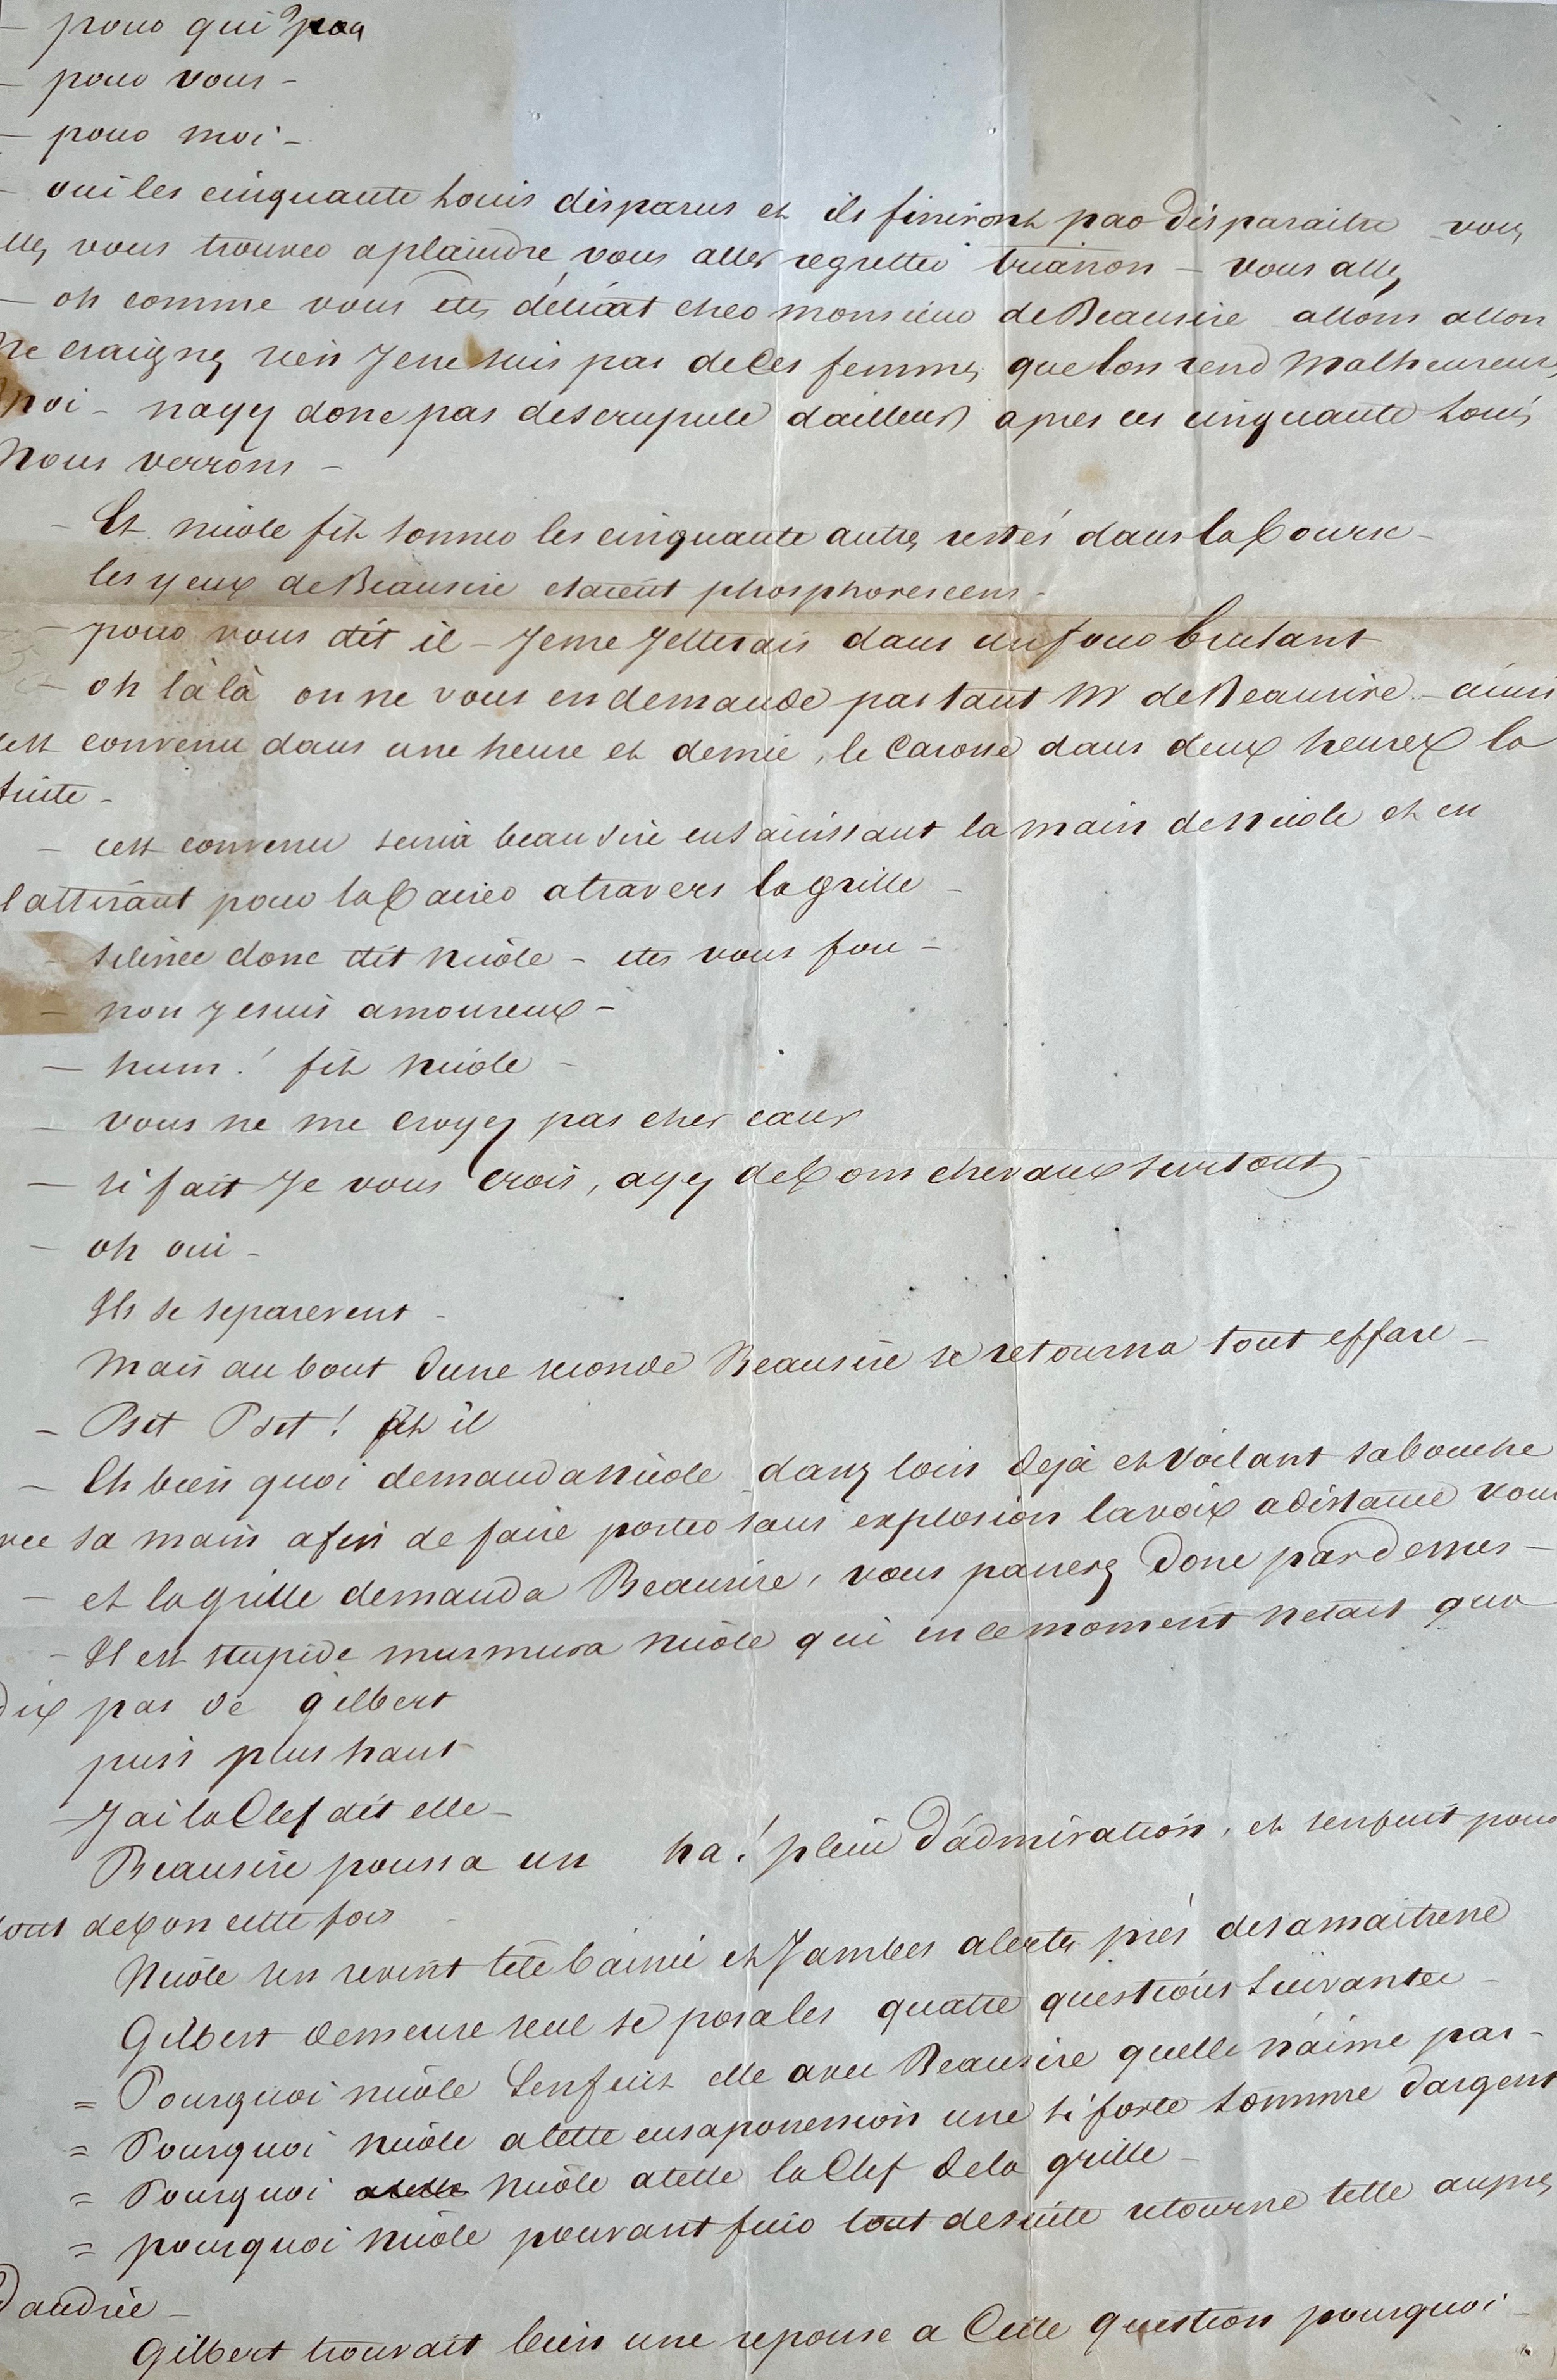 — pour qui
— pour vous —
— pour moi —
— oui les cinquante Louis disparus et ils finiront par disparaitre vous
vous trouver a plaindre vous aller regretter trianon — vous allez
— oh comme vous etes délicat cher monsieur de Beausire allons allon
Ne craignez rien Je ne suis pas de Ces femmes que lon rend Malheureus
Moi — nayez donc pas de scrupule dailleurs apres ces cinquante Louis
Nous verrons —
Et nicole fit sonner les cinquante autres restés dans la bourse —
les yeux de Beausire etaient phosphorescens —
— pour vous dit il — Je me Jetterais dans un four brulant
— oh là là on ne vous en demande pas tant Mr de Beausire — ainsi
cest convenu dans une heure et demie, le Carosse dans deux heures la
fuite —
— cest convenu secria beausire en saisissant la main de Nicole et en
lattirant pour la baiser a travers la grille —
— silence donc dit Nicole — etes vous fou —
— non Je suis amoureux —
— hum ! fit Nicole —
— vous ne me croyez pas cher cœur
— si fait Je vous Crois, ayez de bons chevaux surtout
— oh oui —
Ils se separerent —
Mais au bout dune seconde Beausire se retourna tout effare —
— Psit Psit ! fit il
— Eh bien quoi demanda Nicole dassez loin deja et voilant sa bouche
avec sa main afin de faire porter sans explosion la voix a distance
— et la grille demanda Beausire, vous passerez donc par dessus —
— Il est stupide murmura Nicole qui en ce moment netait qua
dix pas de gilbert
puis plus haut
— Jai la Clef dit elle —
Beausire poussa un ha ! plein d'admiration, et senfuit pour
tout de bon cette fois
Nicole sen revint tête baissée et Jambes alertes près de sa maitresse
Gilbert demeure seul se posa les quatre questions Suivantes —
= Pourquoi nicole Senfuit elle avec Beausire quelle n'aime pas —
= Pourquoi Nicole a telle en sa possession une si forte somme dargent
= Pourquoi Nicole a telle la Clef de la grille —
= pourquoi Nicole pouvant fuir tout de suite retourne telle aupres
dandrée —
Gilbert trouvait bien une reponse a Cette question pourquoi